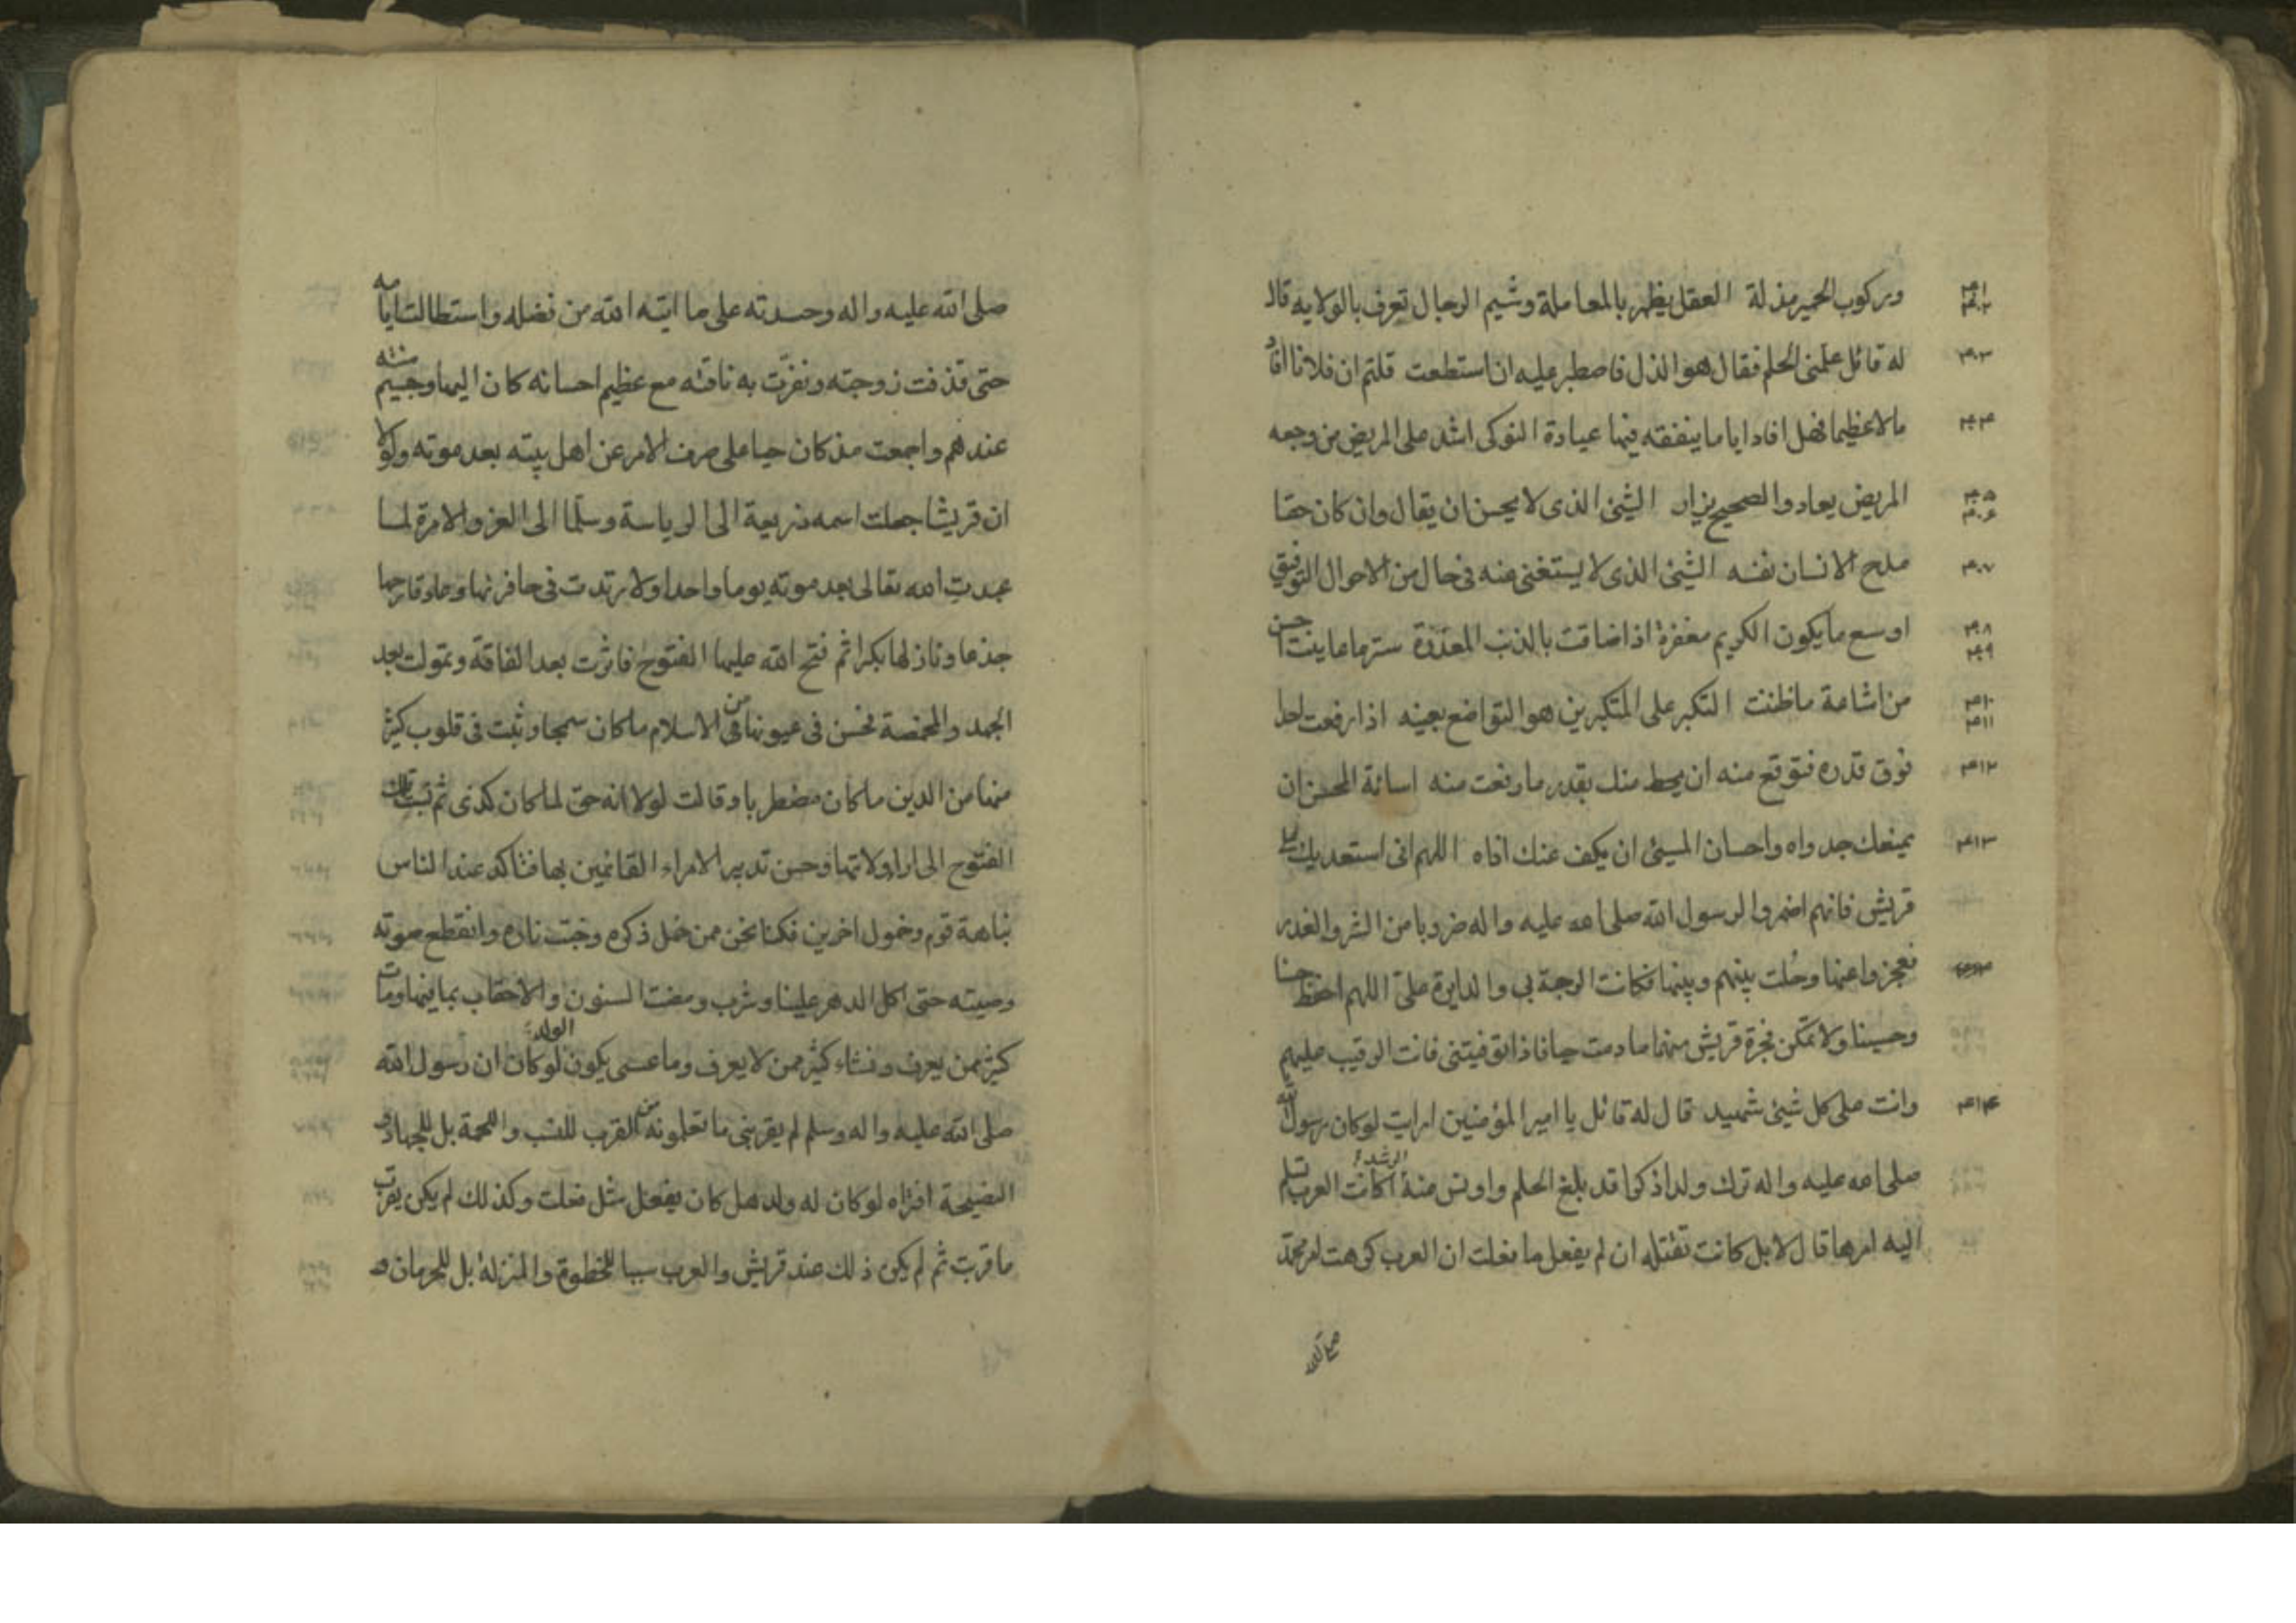 وركوب الحمير مذلة العقل يظهر بالمعاملة وشيم الرجال تعرف بالولاية قال
له قائل علمنى الحلم فقال هو الذل فاصطبر عليه ان استطعت قلتم ان فلانا افاد
مالا عظيما فهل افاد اياما ينفقه فيها عيادة النوكى اشد على المريض من وجعه
المريض يعاد والصحيح يزار الشيئ الذى لا يحسن ان يقال وان كان حقا
مدح الانسان نفسه الشيئ الذى لا يستغنى عنه فى حال من الاحوال التوفيق
اوسع ما يكون الكريم مغفرة اذا ضاقت بالذنب المعذرة ستر ما عاينت احسن
من اشاعة ما ظننت التكبر على المتكبرين هو التواضع بعينه اذا رفعت احدا
فوق قدره فتوقع منه ان يحط منك بقدر ما رفعت منه اسائة المحسن ان
يمنعك جدواه واحسان المسيئ ان يكف عنك اذاه اللهم انى استعديك على
قريش فانهم اضمروا لرسول الله صلى الله عليه واله ضروبا من الشر والغدر
فعجزوا عنها وحُلت بينهم وبينها فكانت الوجبة بي والدايرة علىّ اللهم احفظ حسنا
وحسينا ولا تمكّن فجرة قريش منهما ما دمت حيا فاذا توفيتنى فانت الرقيب عليهم
وانت على كل شيئ شهيد قال له قائل يا امير المؤمنين ارايت لو كان رسول الله
صلى الله عليه واله ترك ولدا ذكرا قد بلغ الحلم واونس منه الرشد اكانت العرب تسلم
اليه امرها قال لا بل كانت تقتله ان لم يفعل ما فعلت ان العرب كرهت امر محمد
صلى الله
۴۰۱
۴۰۲
۴۰۳
۴۰۴
۴۰۵
۴۰۶
۴۰۷
۴۰۸
۴۰۹
۴۱۰
۴۱۱
۴۱۲
۴۱۳
۴۱۴
صلى الله عليه واله وحسدته على ما اتيه الله من فضله واستطالت ايامه
حتى قذفت زوجته ونفرّت به ناقته مع عظيم احسانه كان اليها وجسيم مننه
عندهم واجمعت مذ كان حيا على صرف الامر عن اهل بيته بعد موته ولولا
ان قريشا جعلت اسمه ذريعة الى الرياسة وسلّما الى العز والامرة لما
عبدت الله تعالى بعد موته يوما واحدا ولارتدت فى حافرتها وعاد قارحها
جذعا وبازلها بكرا ثم فتح الله عليها الفتوح فاثرت بعد الفاقة وتمولت بعد
الجهد والمخمصة فحسن فى عيونها من الاسلام ما كان سمجا وثبت فى قلوب كثير
منها من الدين ما كان مضطربا وقالت لولا انه حق لما كان كذى ثم نسبت تلك
الفتوح الى اراء ولاتها وحسن تدبير الامراء القائمين بها فتاكد عند الناس
نباهة قوم وخمول اخرين فكنا نحن ممن خمل ذكره وخبت ناره وانقطع صوته
وصيته حتى اكل الدهر علينا وشرب ومضت السنون والاحقاب بما فيها ومات
كثير ممن يعرف ونشاء كثير ممن لا يعرف وما عسى يكون الولد لو كان ان رسول الله
صلى الله عليه واله وسلم لم يقربنى ما تعلمونه من القرب للنسب واللحمة بل للجهاد و
النصيحة افتراه لو كان له ولد هل كان يفعل مثل فعلت وكذلك لم يكن يقرب
ما قربت ثم لم يكن ذلك عند قريش والعرب سببا للخطوة والمنزلة بل للحرمان و